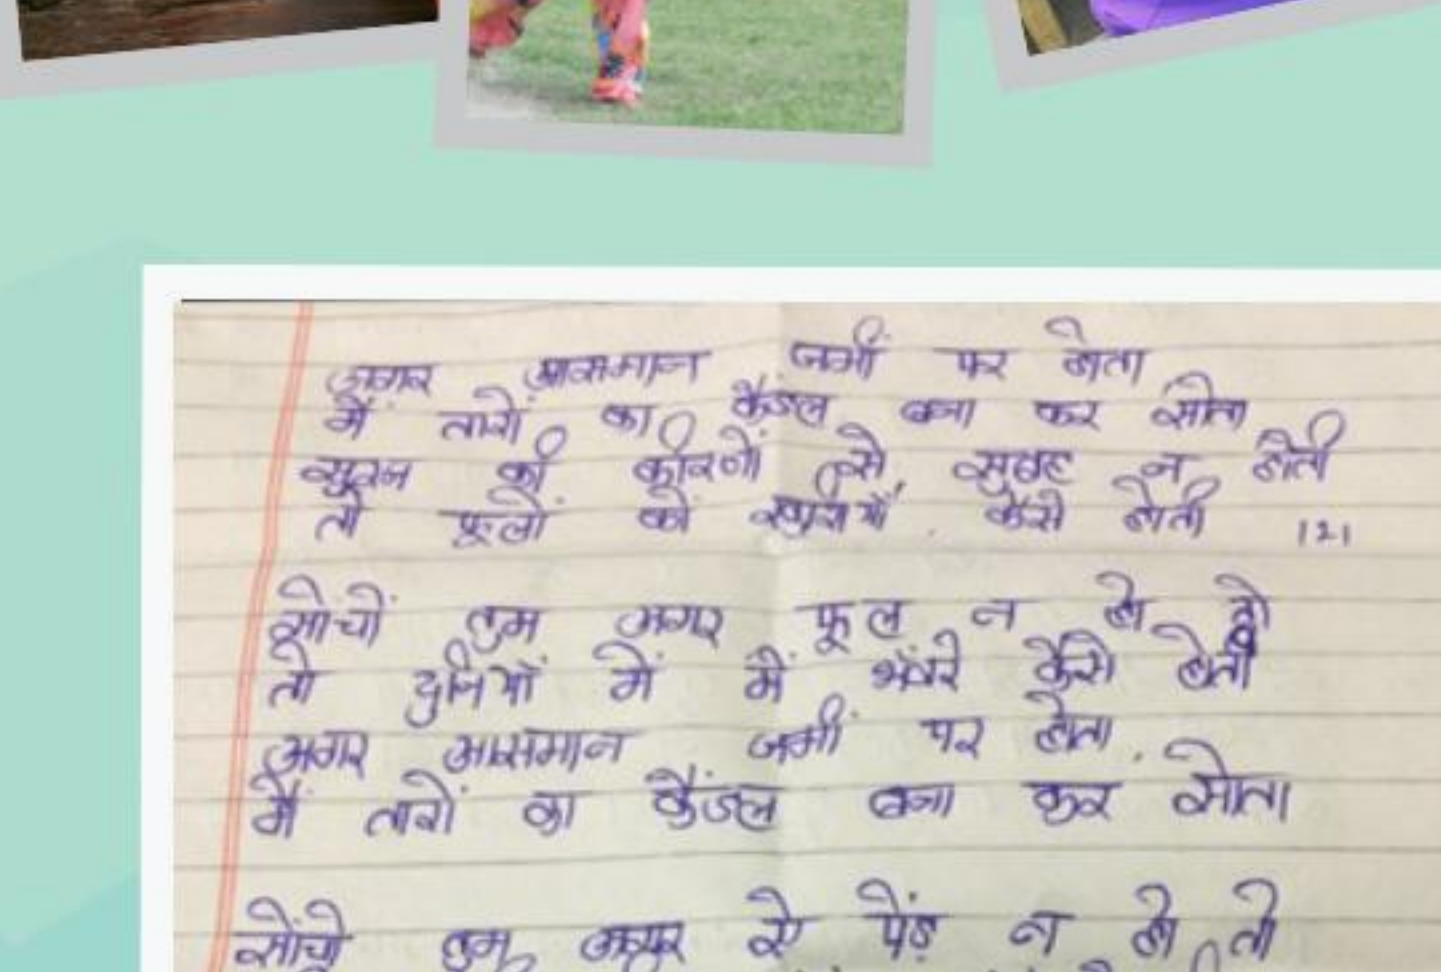 अगर आसमान जमीं पर होता
में तारों का कैंडल बना कर सोता
सुरज की कीरणों से सुबह न होती
तो फूलों को खुशियाँ कैसे होती ।2।
सोचों तुम अगर फूल न हो तो
तो दुनियाँ में में भंवरे कैसे होती
अगर आसमान जमीं पर होता
मैं तारों का कैंडल बना कर सोता
सोंचो तुम अगर ये पेंड़ न हो तो